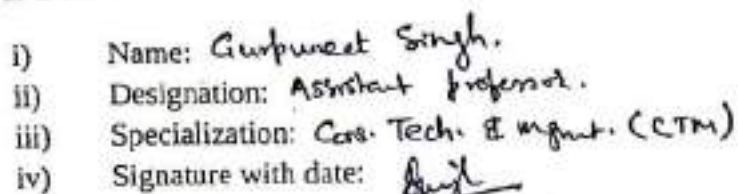 i) Name: Gurpuneet Singh.
ii) Designation: Assistant professor.
iii) Specialization: Cons. Tech. & mgmt. (CTM)
iv) Signature with date: